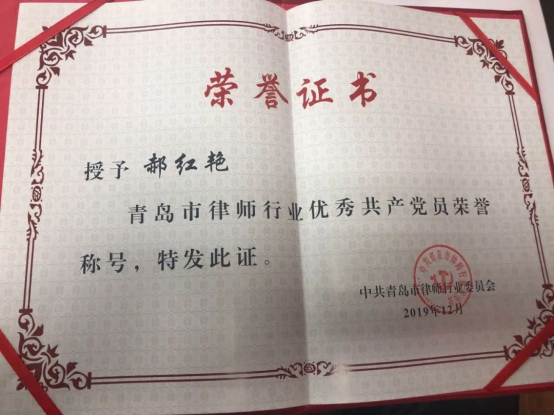 荣誉证书
授予 郝红艳
青岛市律师行业优秀共产党员荣誉
称号，特发此证。
中共青岛市律师行业委员会
2019年12月